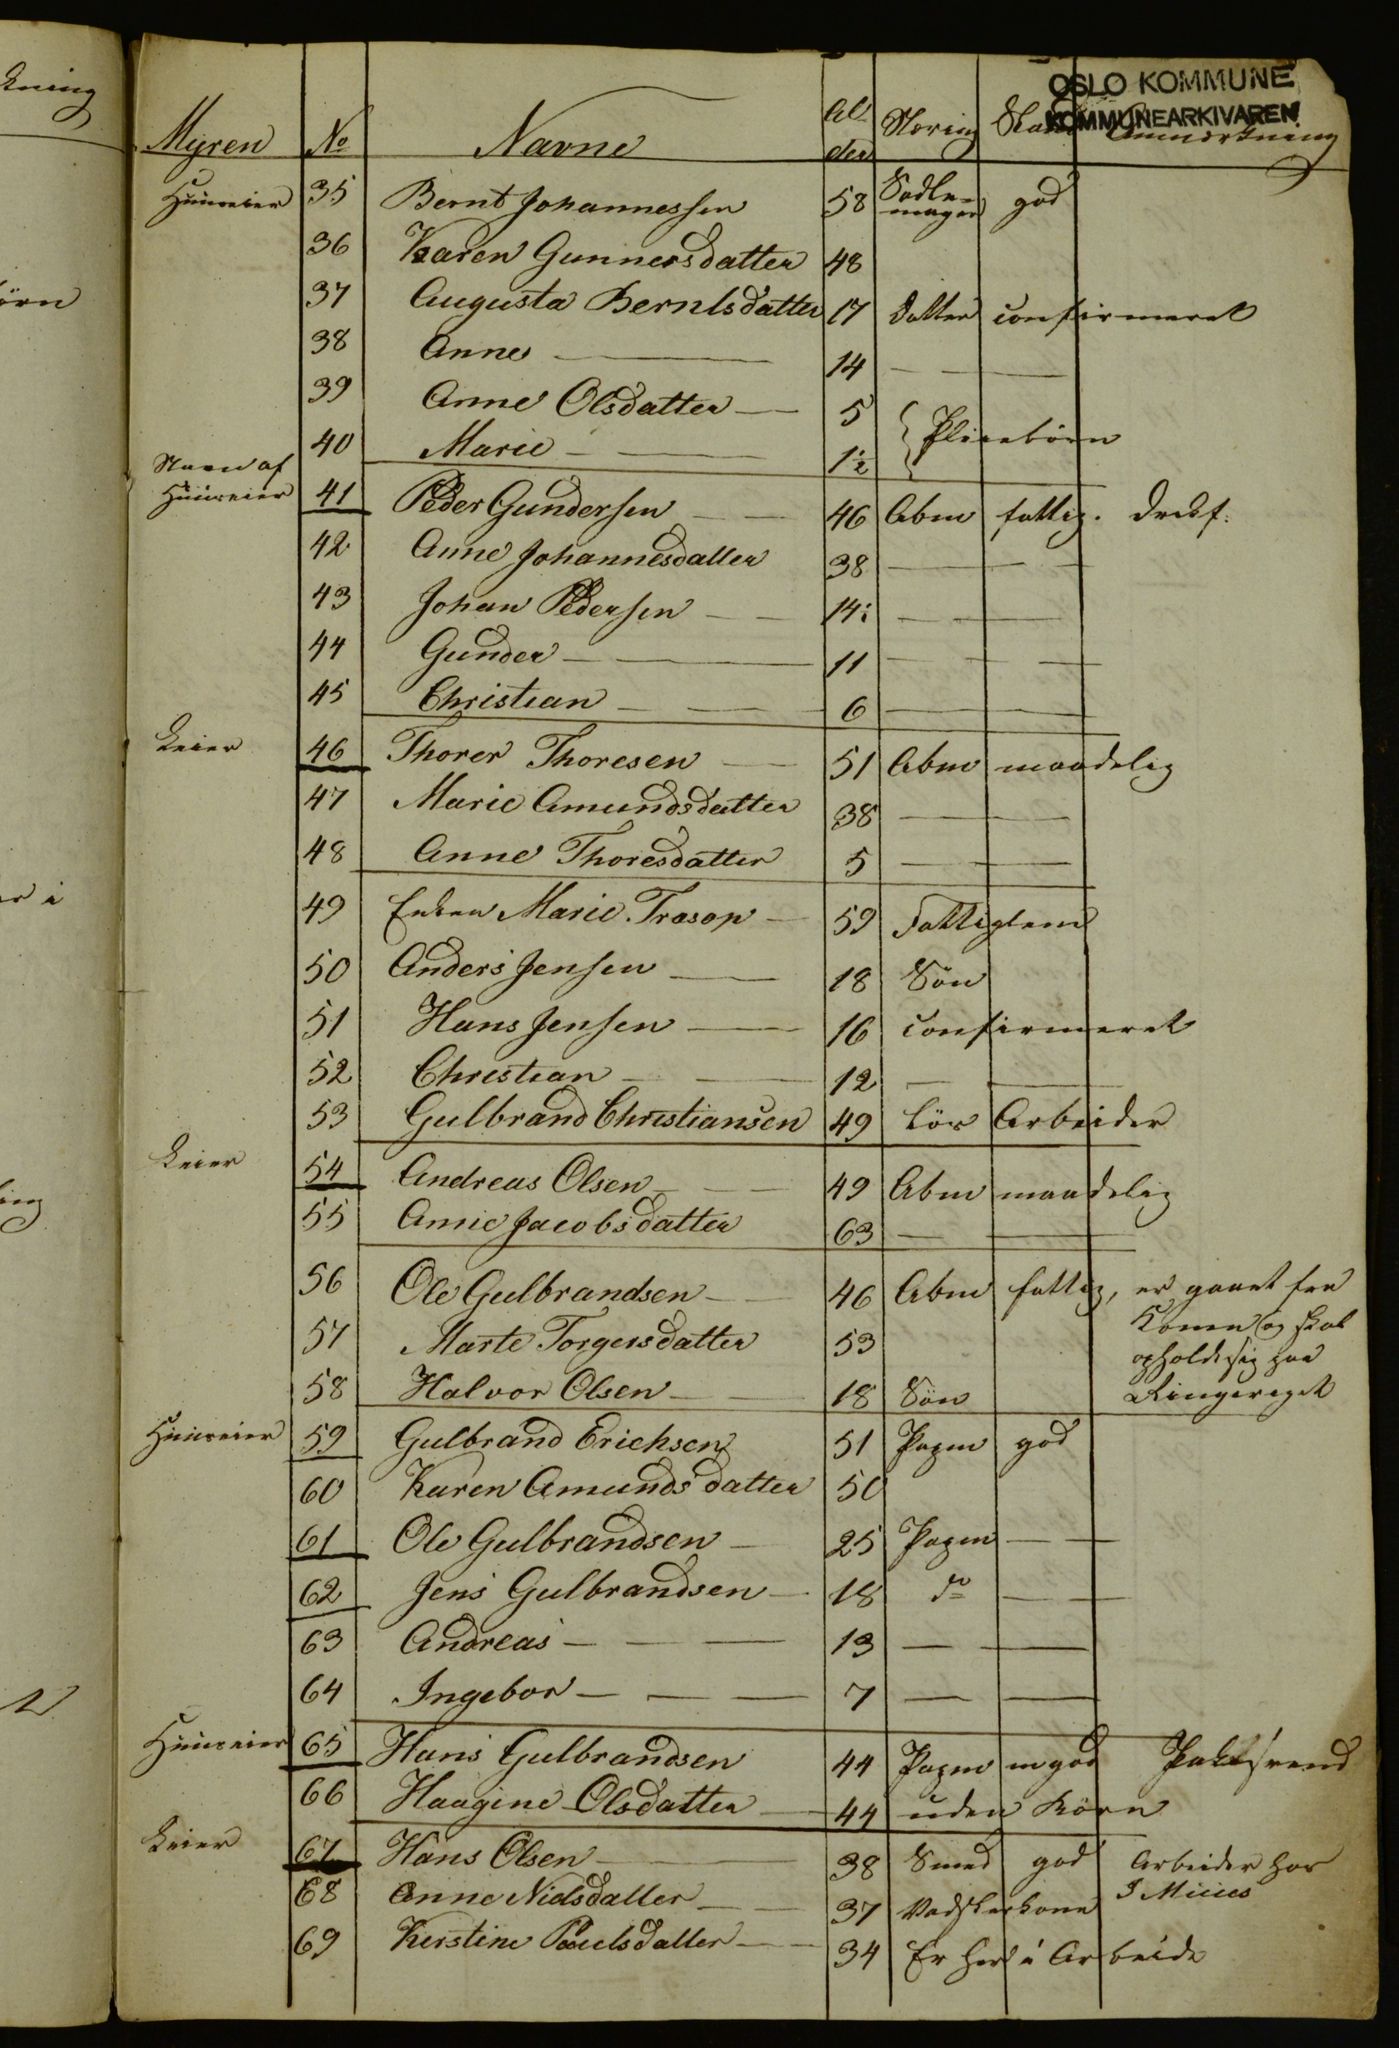 OSLO KOMMUNE
KOMMUNEARKIVAREN
Myren No Navne Alder Næring Anmærkning
Huuseier 35 Bernt Johannessen 58 Sadlemager god
36 Karen Gunnersdatter 48
37 Augusta Berntsdatter 17 datter confirmeret
38 Anne — 14 — —
39 Anne Olsdatter — 5
40 Marie — 1½ } Pleiebørn
Navn af
Huuseier 41 Peder Gundersen — 46 Abm fattig.
42 Anne Johannesdatter 38 — —
43 Johan Pedersen — 14 — —
44 Gunder — 11 — — —
45 Christian — 6 — —
Leier 46 Thorer Thoresen — 51 Abm maadelig
47 Marie Amundsdatter 38 — —
48 Anne Thoresdatter 5 — —
49 Enken Marie Trasop — 59 Fattiglem
50 Anders Jensen — 18 Søn
51 Hans Jensen — 16 confirmeret
52 Christian — 12 — —
53 Gulbrand Christiansen 49 Løs Arbeider
Leier 54 Andreas Olsen — 49 Abm maadelig
55 Anne Jacobsdatter 63 — —
56 Ole Gulbrandsen — 46 Abm fattig, er gaaet fra
57 Marte Torgersdatter 53 Konen og skal
opholde sig paa
58 Halvor Olsen — 18 Søn Ringeriget
Huuseier 59 Gulbrand Erichsen 51 Papm god
60 Karen Amundsdatter 50
61 Ole Gulbrandsen — 25 Papm — —
62 Jens Gulbrandsen — 18 do — —
63 Andreas — 13 — —
64 Ingebor — 7 — —
Huuseier 65 Hans Gulbrandsen 44 Papm m god
66 Haagine Olsdatter — 44 uden Børn
Leier 67 Hans Olsen — 38 Smed god Arbeider hos
68 Anne Nielsdatter — 37 Vadskerkone J Miües
69 Kerstine Paulsdatter — 34 Er her i Arbeide